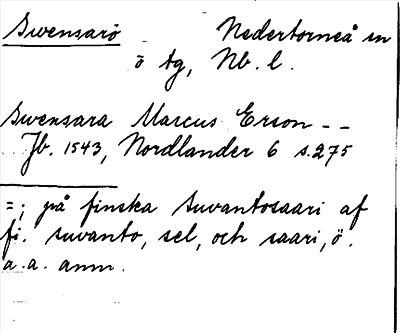 Swensarö Nedertorneå sn
ö tg, Nb. l.
Swensara Marcus Erson - -
Jb. 1543, Nordlander 6 s. 275
= ; på finska Suvantosaari af
fi. suvanto, sel, och saari, ö.
a. a. anm.